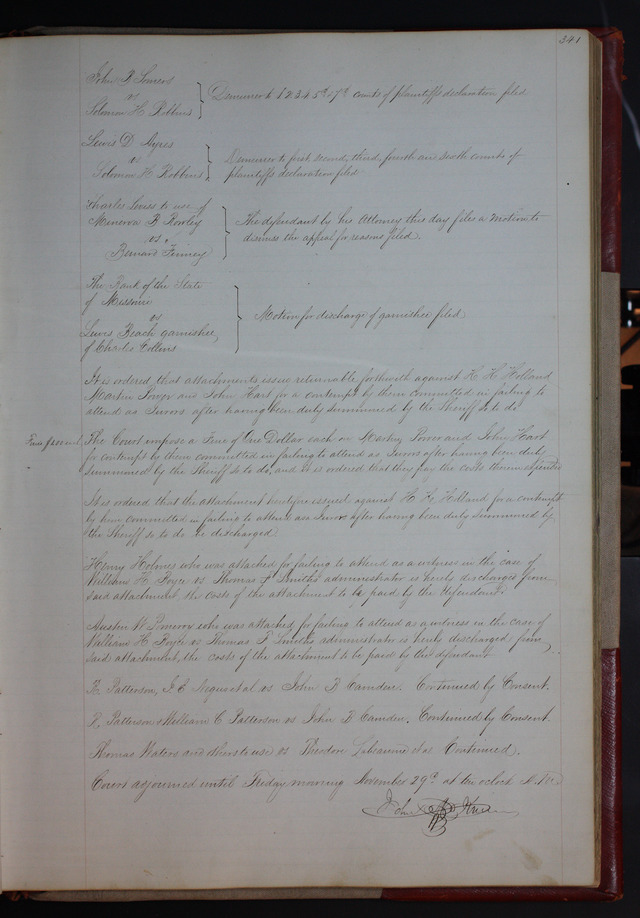 341
John B Somers
vs
Solomon H Robbins
Demurrer to 1 2 3 4 5th & 7th counts of plaintiffs declaration filed
Lewis D Ayres
vs
Solomon H Robbins
Demurrer to first, second, third, fourth and sixth counts of
plaintiffs declaration filed
Charles Lewis to use of
Minerva B Rowley
vs.
Bernard Finney
The defendant by his Attorney this day files a motion to
dismiss the appeal for reasons filed.
The Bank of the State
of Missouri
vs
Lewis Beach garnishee
of Charles Collins
Motion for discharge of garnishee filed
It is ordered that attachments issue returnable forthwith against H H Holland
Martin Power and John Hart for a contempt by them committed in failing to
attend as Jurors after having been duly summoned by the Sheriff so to do
The Court impose a Fine of One Dollar each on Martin Power and John Hart
for contempt by them committed in failing to attend as Jurors after having been duly
summoned by the Sheriff so to do, and it is ordered that they pay the costs
It is ordered that the attachment heretofore issued against H H Holland for a contempt
by him committed in failing to attend as a Juror after having been duly summoned by
the Sheriff so to do be discharged
Henry Holmes who was attached for failing to attend as a witness in the case of
William H Joyce vs Thomas F Smiths administrator is hereby discharged from
said attachment, the costs of the attachment to be paid by the Defendant.
Austin W Pomeroy who was attached for failing to attend as a witness in the case of
William H Joyce vs Thomas F Smiths administrator is hereby discharged from
said attachment, the costs of the attachment to be paid by the defendant
R. Patterson, et al vs John B Camden. Continued by Consent.
R. Patterson & William C Patterson vs John B Camden. Continued by Consent.
Thomas Waters and others to use vs Theodore Continued.
Court adjourned until Friday morning November 29th at ten oclock A.M.
John